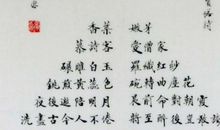 香葉 嫩芽
慕詩客 愛僧家
碾雕白玉 羅織紅紗
銚煎黃蕊色 碗轉曲塵花
夜後邀陪明月 晨前命對朝霞
洗盡古今人不倦